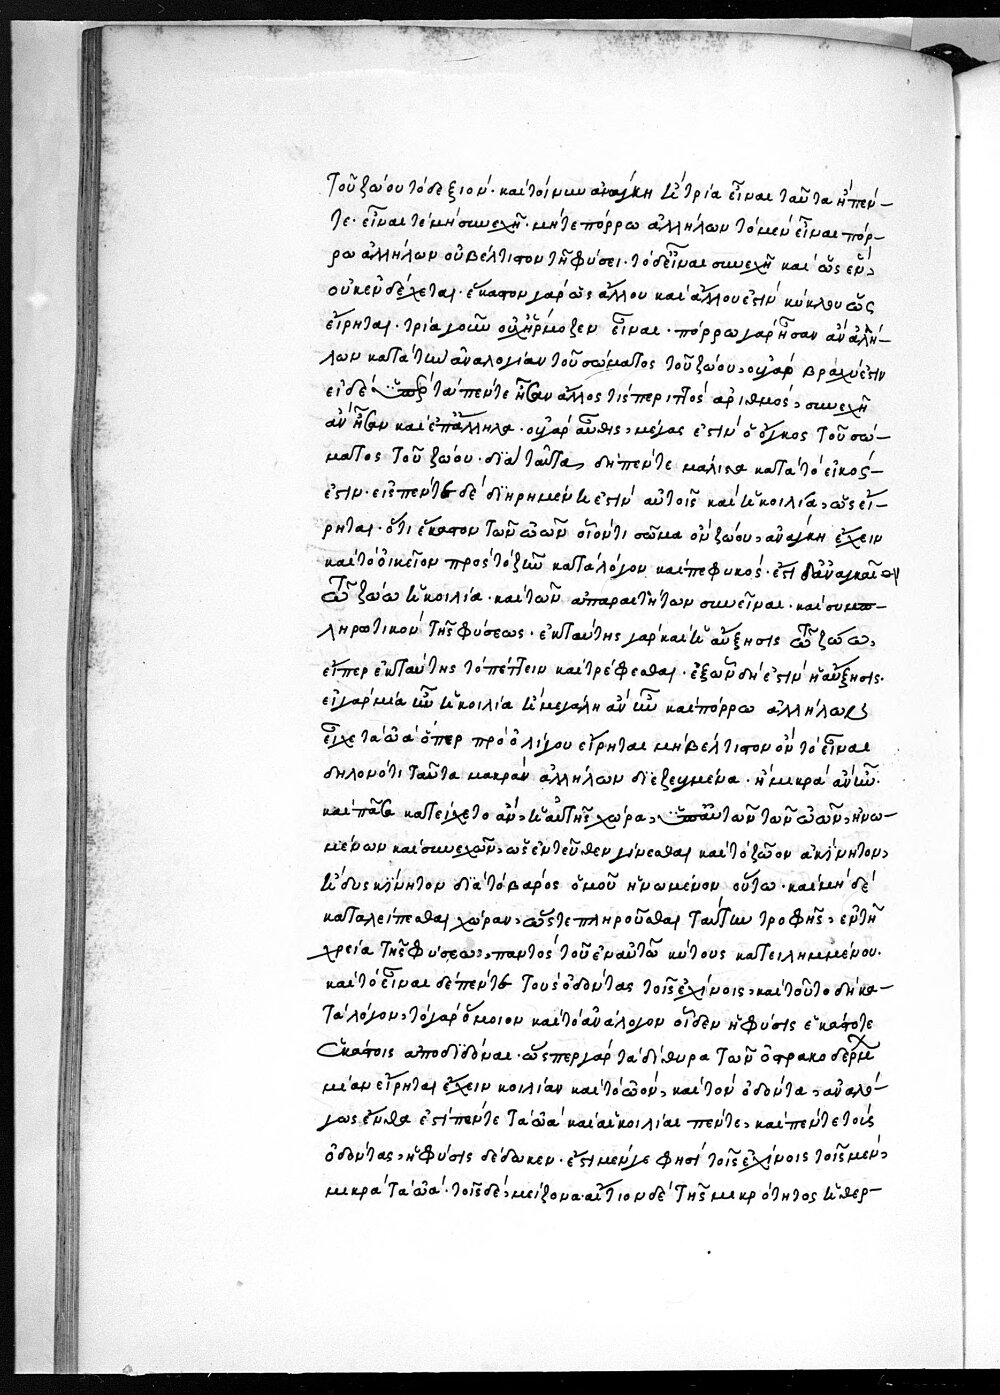 τοῦ ζώου τὸ δεξιόν· καὶ τοίνυν ἀνάγκη ἢ τρία εἶναι ταῦτα ἢ πέν-
τε· εἶναί τε μὴ συνεχῆ· μήτε πόρρω ἀλλήλων τὸ μὲν εἶναι πόρ-
ρω ἀλλήλων οὐ βέλτιστον τῇ φύσει· τὸ δ' εἶναι συνεχῆ καὶ ὡς ἓν,
οὐκ ἐνδέχεται· ἕκαστον γὰρ ὡς ἄλλου καὶ ἄλλου ἐστὶν κύκλου ὡς
εἴρηται· τρία γοῦν οὐχ ἥρμοζεν εἶναι· πόρρω γὰρ ἦσαν ἂν ἀλλή-
λων κατὰ τὴν ἀναλογίαν τοῦ σώματος τοῦ ζώου, οὐ γὰρ βραχύ ἐστιν
εἰ δὲ τὰ πέντε ἦσαν ἄλλος τις περιττὸς ἀριθμός, συνεχῆ
ἂν ἦσαν καὶ ἐπάλληλα· οὐ γὰρ αὖθις, μέγας ἐστὶν ὁ ὄγκος τοῦ σώ-
ματος τοῦ ζώου· διὰ ταῦτα, δὴ πέντε μάλιστα κατὰ τὸ εἰκός
ἐστιν· εἰς πέντε δὲ διῃρημένη ἐστὶν αὐτοῖς καὶ ἡ κοιλία, ὡς εἴ-
ρηται· ὅτι ἕκαστον τῶν ὠῶν οἱονεὶ σῶμα ὂν ζώου, ἀνάγκη ἔχειν
καὶ τὸ οἰκεῖον πρὸς τὸ ζῆν κατὰ λόγον καὶ πεφυκός· ἔστι δ' ἀναγκαῖον
τῷ ζώῳ ἡ κοιλία· καὶ τῶν ἀπαραιτήτων συνεῖναι· καὶ συμπ-
ληρωτικὸν τῆς φύσεως· ἐκ ταύτης γὰρ καὶ ἡ αὔξησις τῷ ζώῳ,
εἴπερ ἐκ ταύτης τὸ πέττειν καὶ τρέφεσθαι· ἐξ ὧν δή ἐστιν ἡ αὔξησις·
εἰ γὰρ μία ἦν ἡ κοιλία ἢ μεγάλη ἂν ἦν καὶ πόρρω ἀλλήλων
εἶχε τὰ ὠὰ ὅπερ πρὸ ὀλίγου εἴρηται μὴ βέλτιστον ὂν τὸ εἶναι
δηλονότι ταῦτα μακρὰν ἀλλήλων διεζευγμένα· ἢ μικρὰ ἂν ἦν·
καὶ πᾶσα κατείχετο ἂν, ἡ αὐτῆς χώρα, αὐτῶν τῶν ὠῶν, ἡνω-
μένων καὶ συνεχῶν, ὡς ἐντεῦθεν γίνεσθαι καὶ τὸ ζῶον ἀκίνητον,
ἢ δυσκίνητον διὰ τὸ βάρος ὁμοῦ ἡνωμένον οὕτω· καὶ μὴ δὲ
καταλείπεσθαι χώραν, ὥστε πληροῦσθαι ταύτην τροφῆς, ἐν τῇ
χρείᾳ τῆς φύσεως, παντὸς τοῦ ἐν αὐτῷ κύτους κατειλημμένου·
καὶ τὸ εἶναι δὲ πέντε τοὺς ὀδόντας τοῖς ἐχίνοις, καὶ τοῦτο δὴ κα-
τὰ λόγον, τὸ γὰρ ὅμοιον καὶ τὸ ἀνάλογον οἶδεν ἡ φύσις ἑκάστοτε
ἑκάστοις ἀποδιδόναι· ὥσπερ γὰρ τὰ δίθυρα τῶν ὀστρακοδέρμων
μίαν εἴρηται ἔχειν κοιλίαν καὶ τὸ ὠόν, καὶ τὸν ὀδόντα, ἀναλό-
γως ἔνθα ἐστὶ πέντε τὰ ὠὰ καὶ αἱ κοιλίαι πέντε, καὶ πέντε τοὺς
ὀδόντας, ἡ φύσις δέδωκεν· ἔστι μέν γε φησὶ τοῖς ἐχίνοις τοῖς μὲν,
μικρὰ τὰ ὠὰ· τοῖς δὲ, μείζονα· αἴτιον δὲ τῆς μικρότητος ἡ θερ-